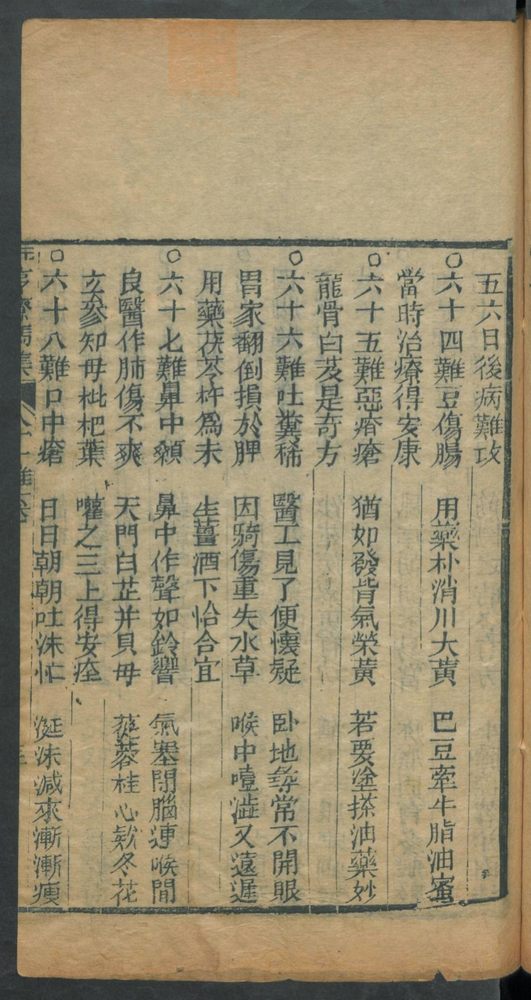 五六日後病難攻
○六十四難豆傷腸 用藥朴消川大黃 巴豆牽牛脂油蜜
當時治療得安康
○六十五難惡瘡瘡 猶如發背氣榮黃 若要塗搽油藥妙
龍骨白芨是奇方
○六十六難吐糞稀 醫工見了便懷疑 卧地尋常不開眼
胃家翻倒損於脾 因騎傷重失水草 喉中噎澁又遠遲
用藥茯苓杵爲末 生薑酒下恰合宜
○六十七難鼻中顙 鼻中作聲如鈴響 氣塞閉腦連喉閒
良醫作肺傷不爽 天門白芷并貝母 蓉桂心欵冬花
玄參知母枇杷葉 嚾之三上得安痊
○六十八難口中瘡 日日朝朝吐沫忙 涎沫減來漸漸瘐
元亨療馬集